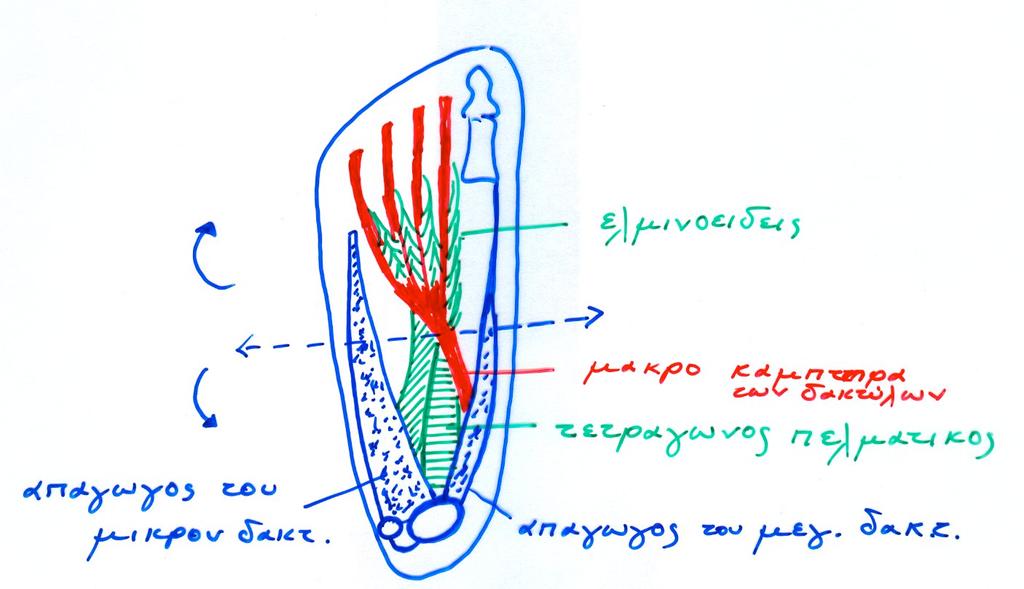 ελμινοειδεις
μακρο καμπτηρα
των δακτύλων
τετραγωνος πελματικος
απαγωγος του
μικρου δακτ.
απαγωγος του μεγ. δακτ.